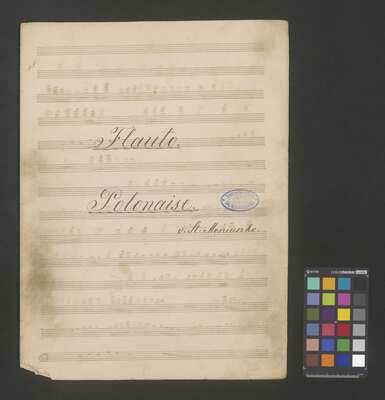 Flauto.
Polonaise.
v. St. Moniuszko.